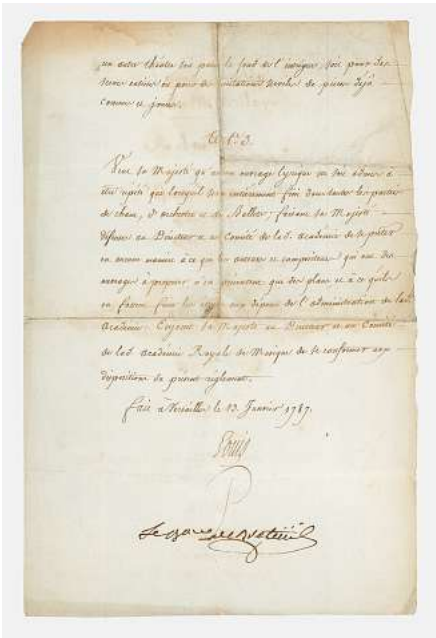 un autre théatre soit pour le fond de l'intrigue, soit pour des
scenes entieres ou pour des imitations serviles de pieces déjà
connues et jouées.
Art. 3.
Veut sa Majesté qu'aucun ouvrage lyrique ne soit admis à
être répété que lorsqu'il sera entierement fini dans toutes les parties
de chant, d'orchestre et de Ballet; faisant sa Majesté
défenses au Directeur et au Comité de lad. académie de se prêter
en aucune maniere à ce que les auteurs et compositeurs qui ont des
ouvrages à proposer n'en présentent que des plans et à ce qu'ils
en fassent faire les aux dépens de l'administration de lad.
académie. Enjoint sa Majesté au Directeur et au Comité
de lad. académie Royale de Musique de se conformer aux
dispositions du présent règlement.
fait à Versailles le 13. Janvier 1787.
Louis
Le Baron de Breteuil